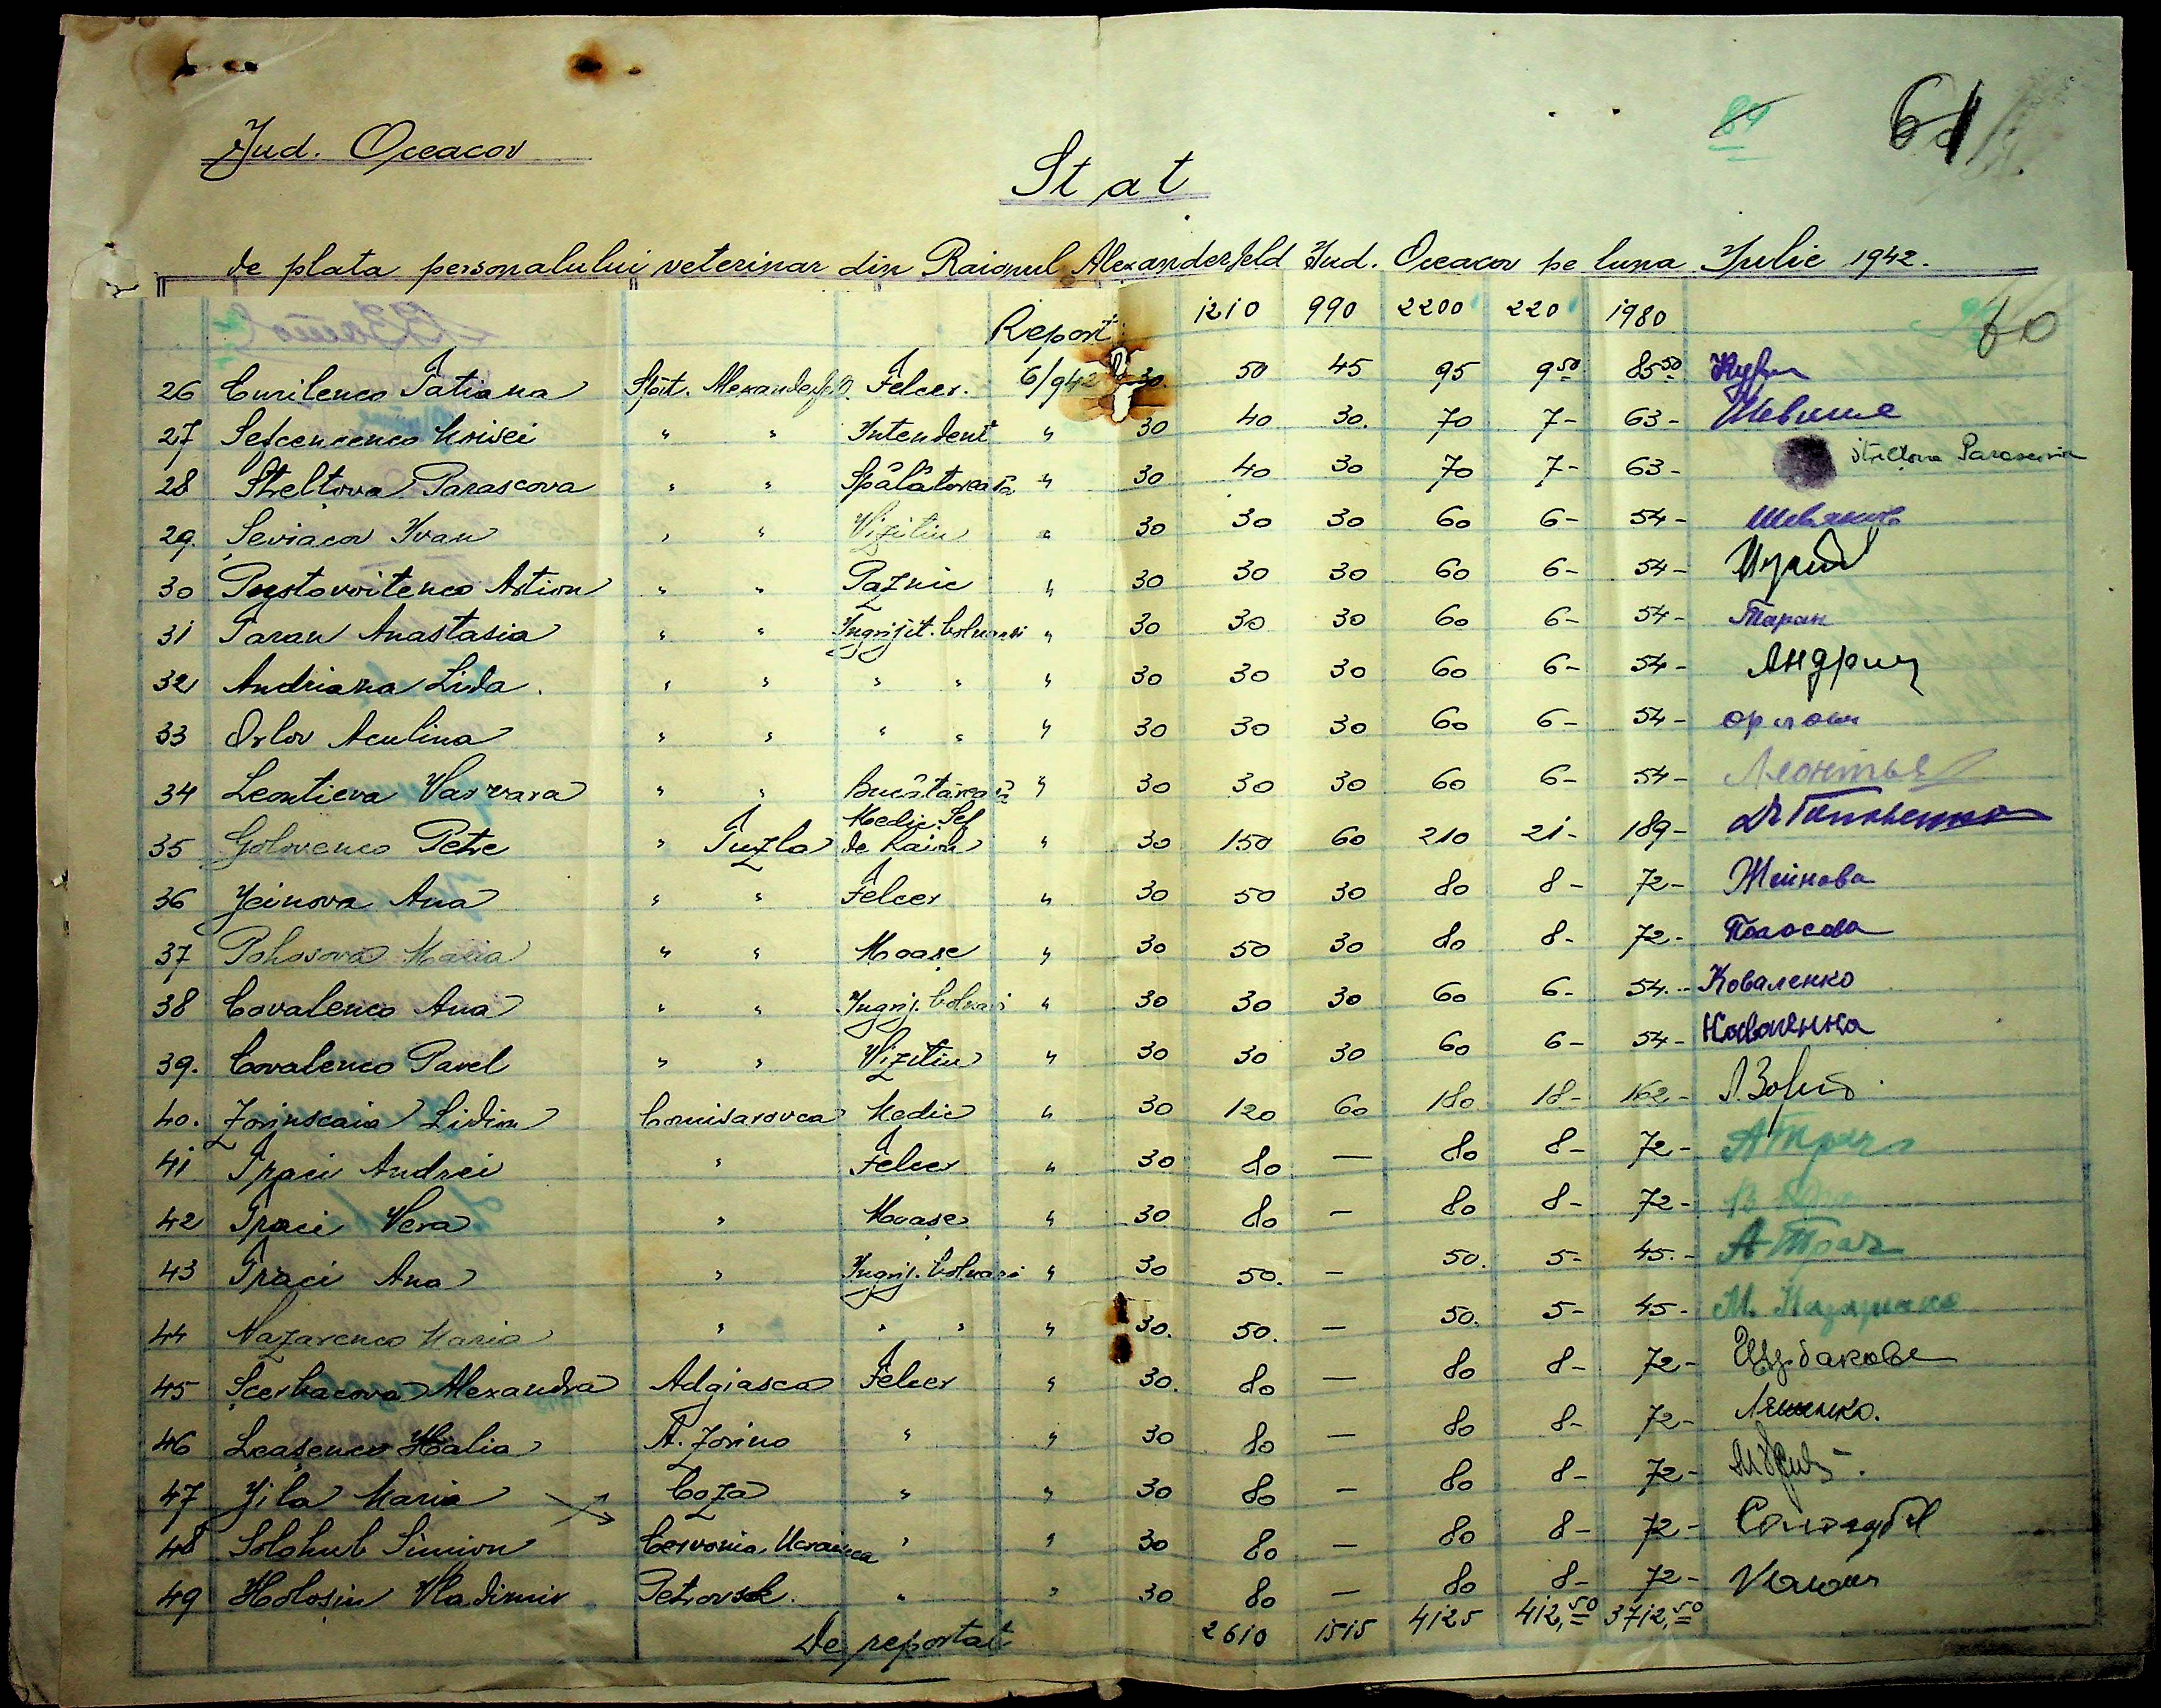 84 61
Jud. Oceacov
Stat
de plata personalului veterinar din Raionul Alexanderfeld Jud. Oceacov pe luna Iulie 1942.
Report 1210 990 2200 220 1980 60
26 Curilenco Tatiana Spit. Alexanderfeld Felcer. 6/942 30. 50 45 95 9 50 85 50
27 Sefcencenco Moisei " " Intendent " 30 40 30. 70 7- 63-
28 Streltova Parascova " " Spălătoreasă " 30 40 30 70 7- 63- Streltova Parascovia
29. Șeviacov Ivan " " Vizitiu " 30 30 30 60 6- 54- Шевяков
30 Pustovoitenco Astion " " Paznic " 30 30 30 60 6- 54-
31 Taran Anastasia " " Ingrijit. bolnavi " 30 30 30 60 6- 54- Таран
32 Andriana Lida. " " " " " 30 30 30 60 6- 54- Андрин
33 Orlov Aculina " " " " " 30 30 30 60 6- 54- орлова
34 Leontieva Varvara " " Bucătăreasă " 30 30 30 60 6- 54- Леонтье
35 Golovenco Petre " Tuzla Medic Șef de Raion " 30 150 60 210 21- 189-
36 Jeinova Ana " " Felcer " 30 50 30 80 8- 72- Жейнова
37 Polosova Maria " " Moașe " 30 50 30 80 8- 72- Полосова
38 Covalenco Ana " " Ingrij. bolnavi " 30 30 30 60 6- 54- Коваленко
39. Covalenco Pavel " " Vizitiu " 30 30 30 60 6- 54- Коваленка
40. Zorinscaia Lidia Comisarovca Medic " 30 120 60 180 18- 162-
41 Traci Andrei " Felcer " 30 80 — 80 8- 72- А Трач
42 Traci Vera " Moașe " 30 80 — 80 8- 72-
43 Traci Ana " Ingrij. bolnavi " 30 50. — 50. 5- 45.- А Трач
44 Nazarenco Maria " " " " 30. 50. — 50. 5- 45- М. Назаренко
45 Șcerbacova Alexandra Adgiasca Felcer " 30. 80 — 80 8- 72-
46 Leașenco Halia A. Zorino " " 30 80 — 80 8- 72- Ляшенко.
47 Jila Maria Coza " " 30 80 — 80 8- 72-
48 Solohub Simion Cervonia Ucrainca " " 30 80 — 80 8- 72- Сологуб
49 Holoșin Vladimir Petrovsk. " " 30 80 — 80 8- 72-
De reportat 2610 1515 4125 412,50 3712,50